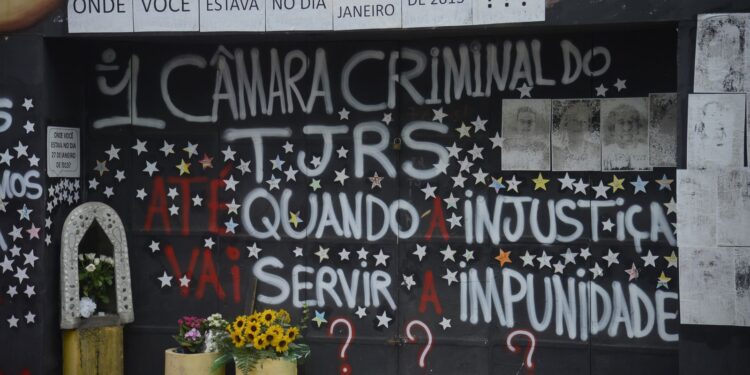 ONDE VOCÊ ESTAVA NO DIA JANEIRO DE 2013 ???
1ª CÂMARA CRIMINAL DO
TJRS
ATÉ QUANDO A INJUSTIÇA
VAI SERVIR A IMPUNIDADE
???
ONDE VOCÊ
ESTAVA NO DIA
27 DE JANEIRO
DE 2013?